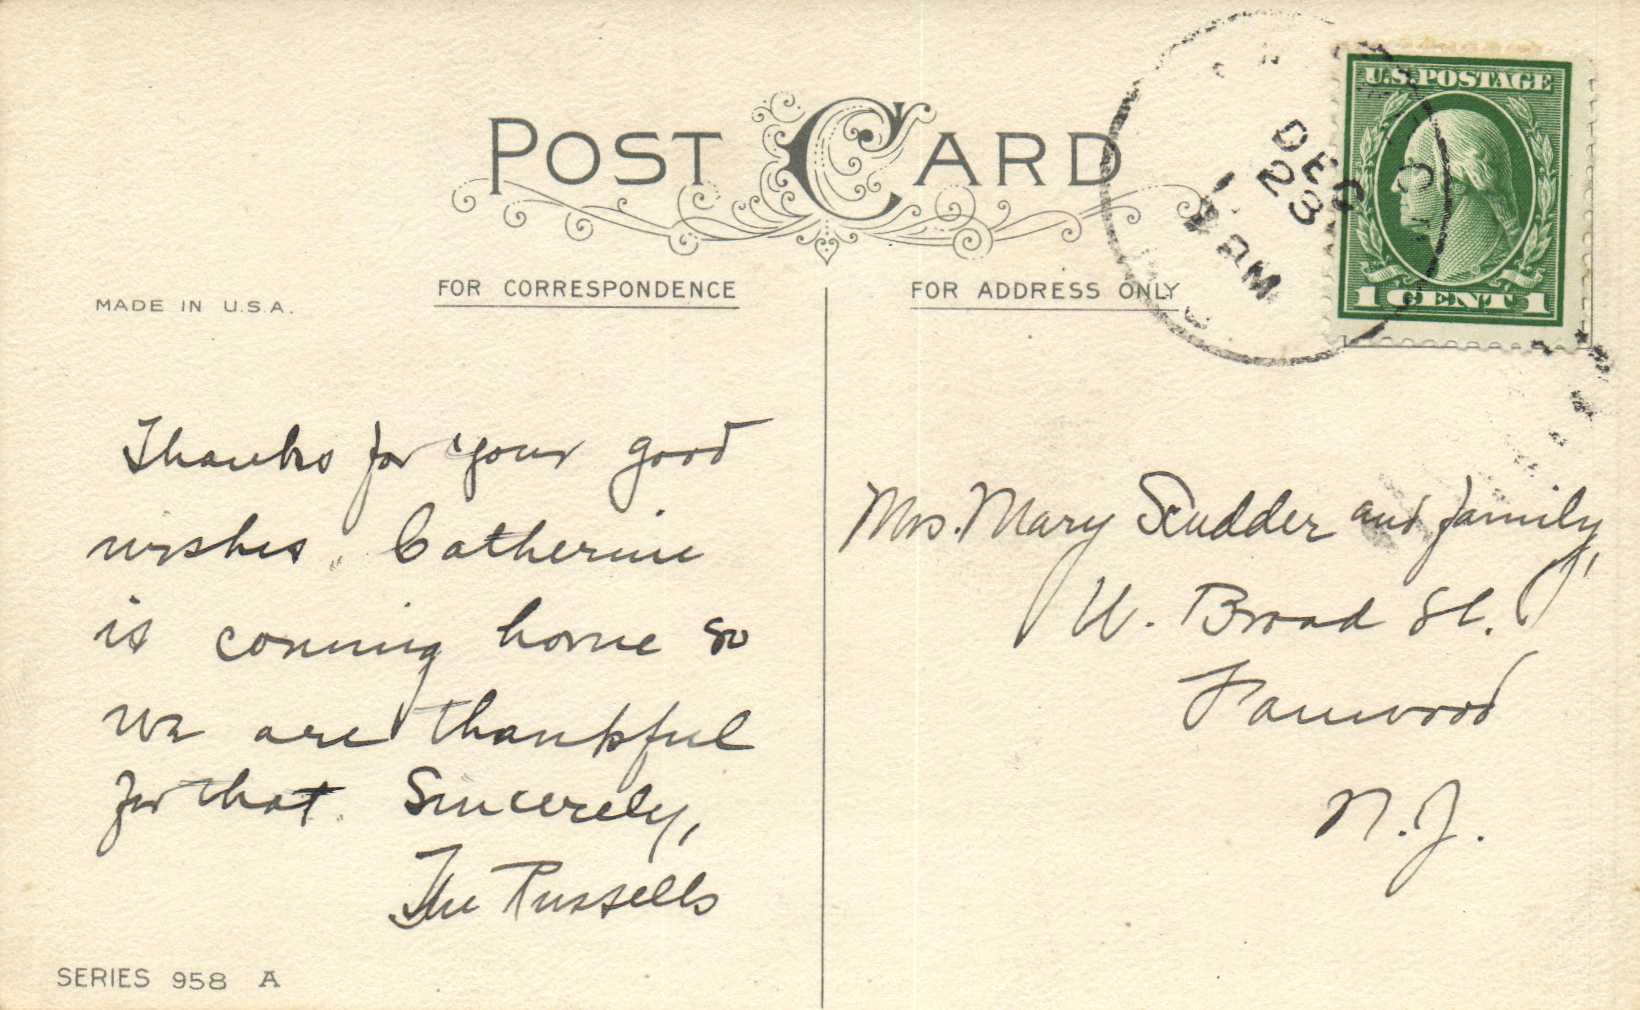 POST CARD
U.S. POSTAGE
1 CENT 1
DEC
23
AM
MADE IN U.S.A.
FOR CORRESPONDENCE
FOR ADDRESS ONLY
Thanks for your good
wishes. Catherine
is coming home so
we are thankful
for that. Sincerely,
The Russells
Mrs. Mary Scudder and family,
W. Broad St.
Fanwood
N.J.
SERIES 958 A